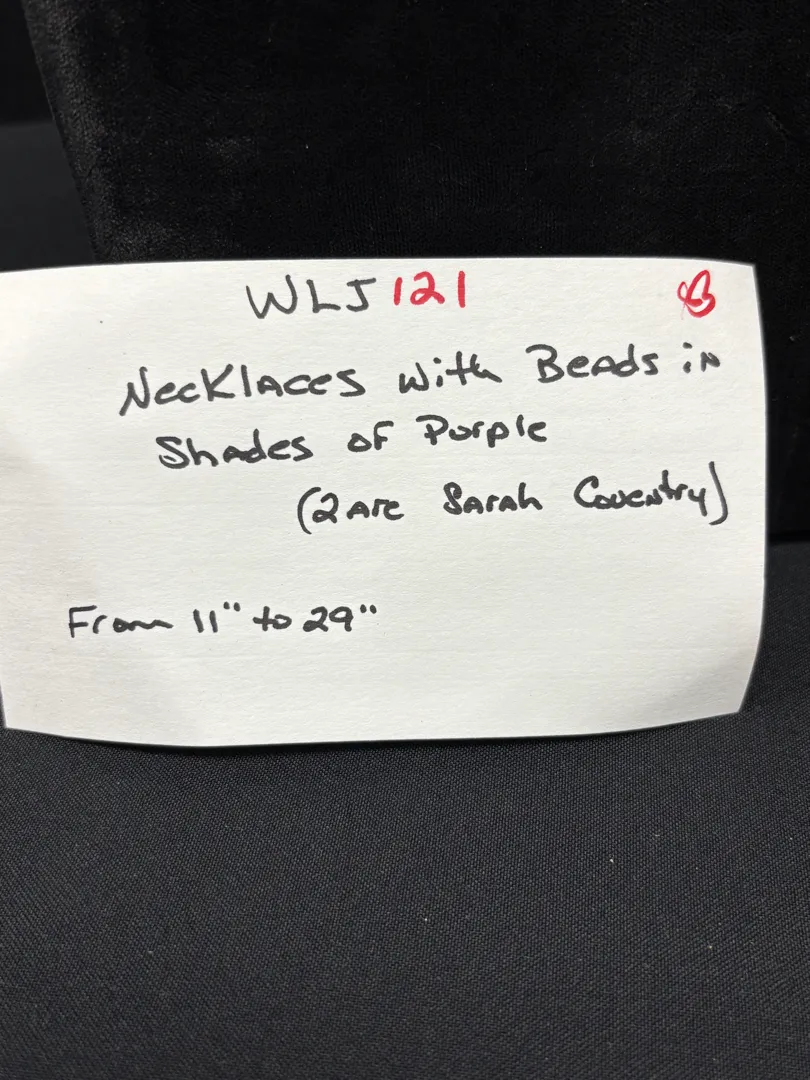 WLJ 121
Necklaces with Beads in
Shades of Purple
(2 are Sarah Coventry)
From 11" to 29"